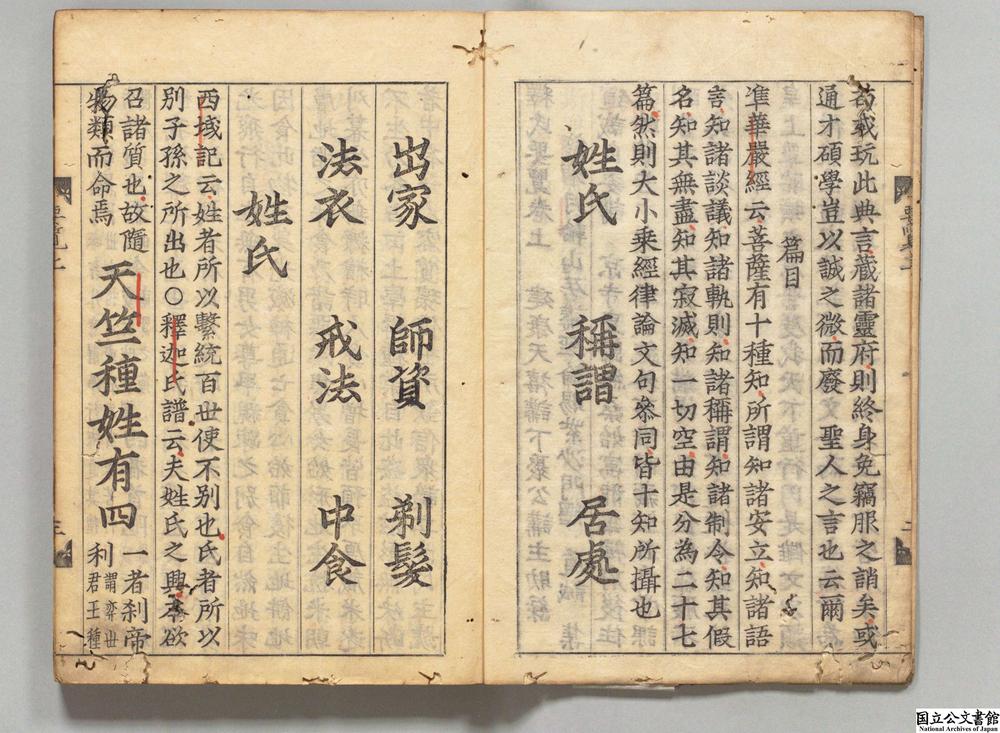 若或玩此典言藏諸靈府則終身免竊服之誚矣或
通才碩學豈以誠之微而廢文聖人之言也云爾
篇目
準華嚴經云菩薩有十種知所謂知諸安立知諸語
言知諸談議知諸軌則知諸稱謂知諸制令知其假
名知其無盡知其寂滅知一切空由是分為二十七
篇然則大小乘經律論文句叅同皆十知所攝也
姓氏 稱謂 居處
出家 師資 剃髮
法衣 戒法 中食
姓氏
西域記云姓者所以繫統百世使不別也氏者所以
別子孫之所出也〇釋迦氏譜云夫姓氏之興本欲
召諸質也故隨
物類而命焉
天竺種姓有四
一者刹帝
利
謂弈世
君王種
要覽上
二
三
国立公文書館
National Archives of Japan